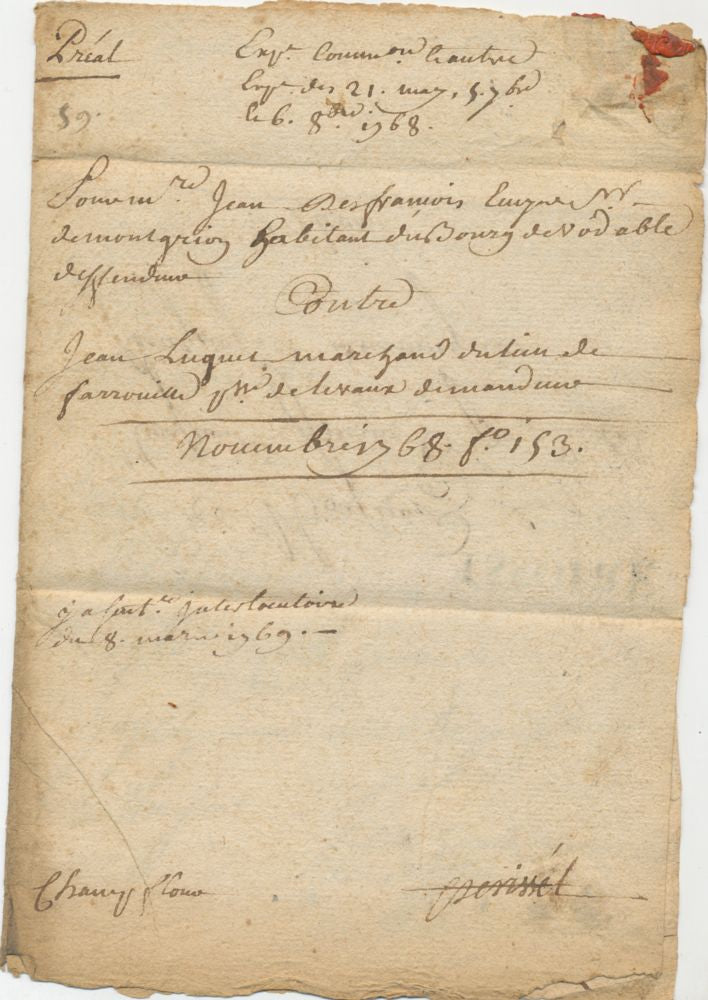 Préal
Exp.on Comm.on Lautre
Exp.on des 21. may, 5. 7bre
le 6. 8bre. 1768.
59.
Pour m.re Jean Desfrancois Ecuyer Sr.
de montgrion habitant du Bourg de Vodable
deffendeur
Contre
Jean Luquet marchand du lieu de
farrouilh p.sse de levaux demandeur
Nouembre 1768. f.o 153.
ÿ a sent.ce Jnterlocutoire
du 8. mars 1769. —
Champflour
perissel